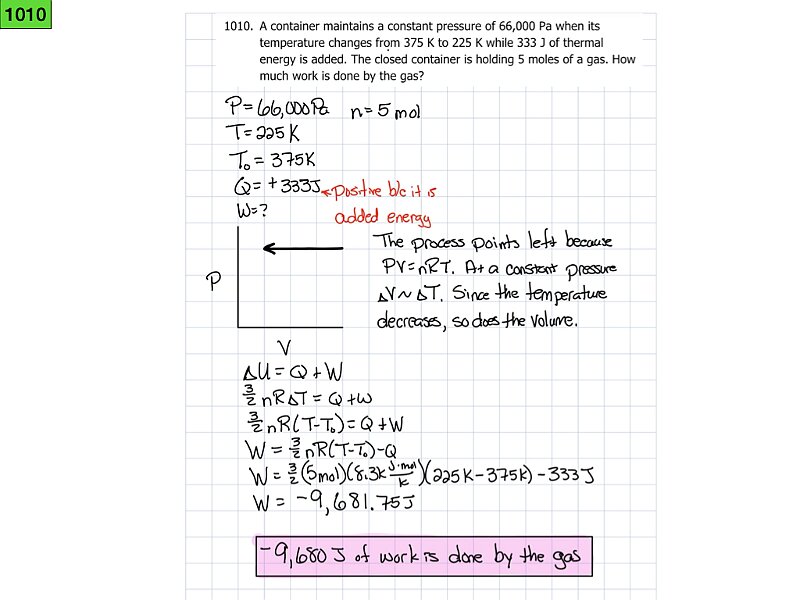 1010
1010. A container maintains a constant pressure of 66,000 Pa when its
temperature changes from 375 K to 225 K while 333 J of thermal
energy is added. The closed container is holding 5 moles of a gas. How
much work is done by the gas?
P=66,000Pa n=5 mol
T=225K
T₀ = 375K
Q=+333J ←positive b/c it is
added energy
W=?
The process points left because
PV=nRT. At a constant pressure
ΔV~ΔT. Since the temperature
decreases, so does the volume.
P
V
ΔU = Q+W
3/2 nRΔT = Q+W
3/2 nR(T-T₀)=Q+W
W = 3/2 nR(T-T₀)-Q
W = 3/2(5mol)(8.31 J·mol/K)(225K-375K) - 333J
W = -9,681.75J
-9,680 J of work is done by the gas